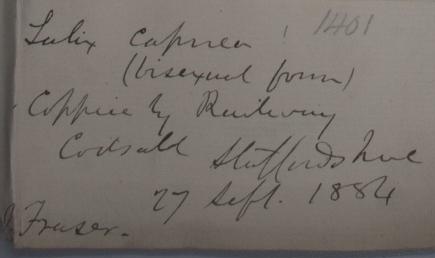 Salix caprea ! 1401
(bisexual form)
Coppice by Railway
Codsall Staffordshire
27 Sept. 1884
J. Fraser.